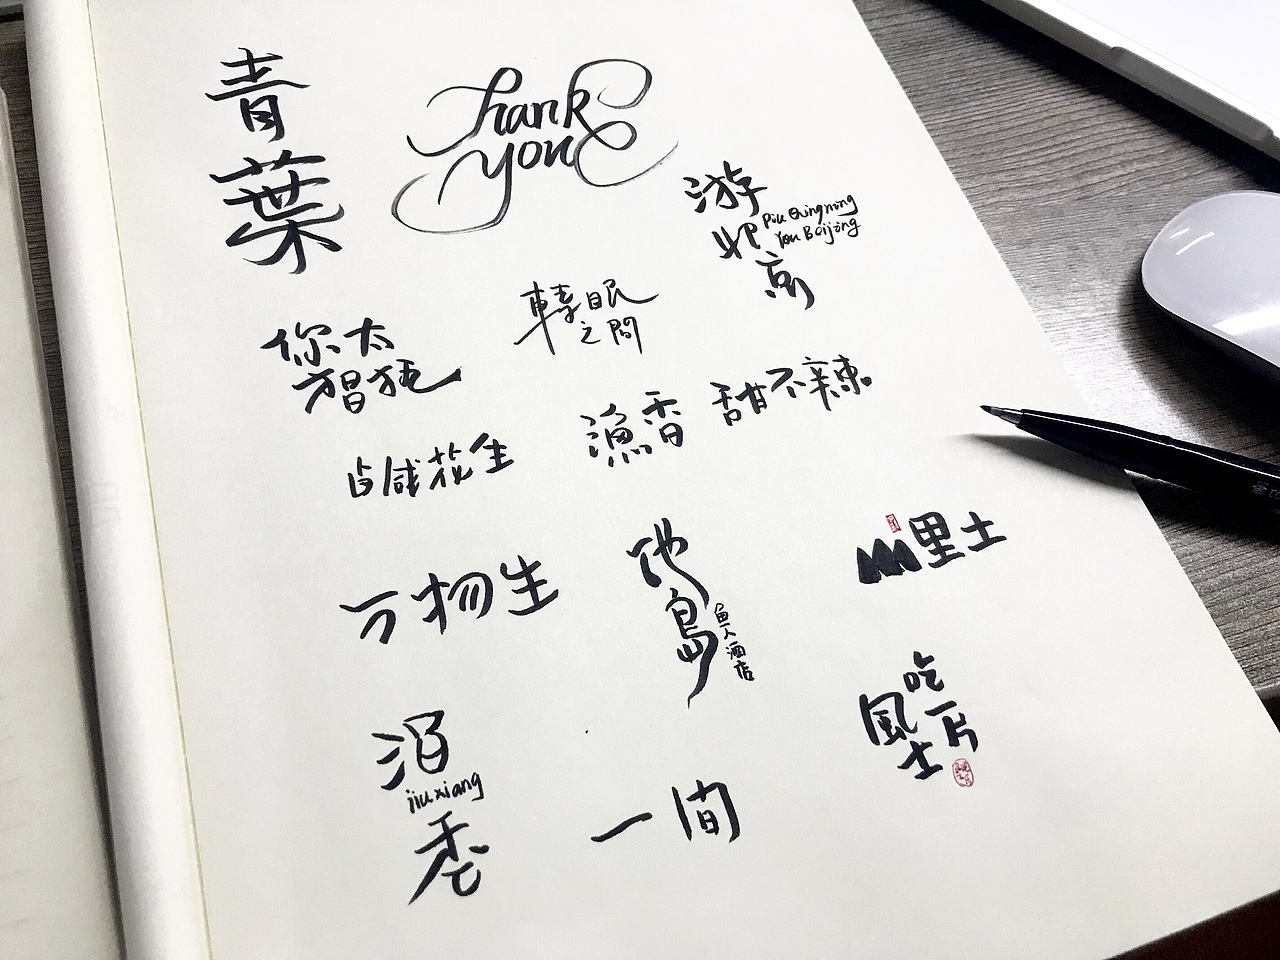 青
葉
Thank
you
游
北
京
Piu Qingnong
You Beijing
轉眼
之間
你太
猖狂
鹵咸花生
漁香
甜不辣
万物生
池
島
魚人酒店
山里土
酒
jiuxiang
香
一间
吃
一片
風
土